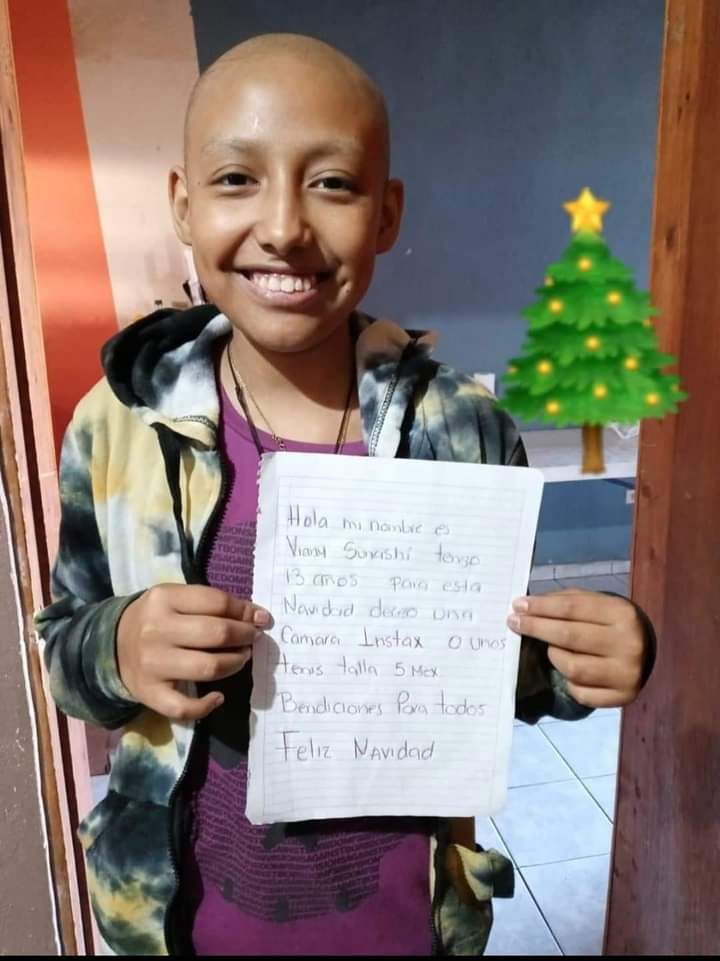 Hola mi nombre es
Viany Sunashi tengo
13 años para esta
Navidad deseo una
Camara Instax o unos
tenis talla 5 Mex
Bendiciones Para todos
Feliz Navidad